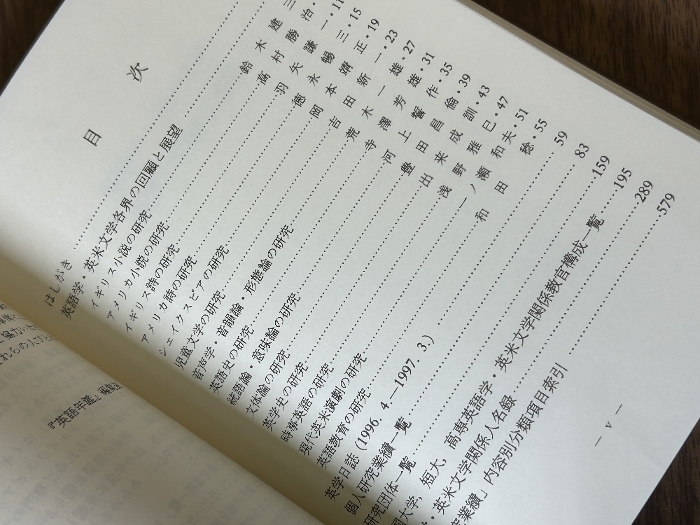 目 次
はしがき
英語学 英米文学各界の回顧と展望
イギリス小説の研究 鈴木建三
アメリカ小説の研究 高村勝治・
イギリス詩の研究 矢謙一・11
アメリカ詩の研究 徳永暢三・15
シェイクスピアの研究 岡本靖正・19
児童文学の研究 吉田新一・23
音声学・音韻論・形態論の研究 荒木一雄・27
英語史の研究 寺澤芳雄・31
統語論・意味論の研究 河上誓作・35
文体論の研究 豊田昌倫・39
英学史の研究 出来成訓・43
時事英語の研究 浅野雅巳・47
現代英米演劇の研究 一ノ瀬和夫・51
英語教育の研究 和田 稔・55
英学日誌 (1996. 4.—1997. 3.) 59
個人研究業績一覧 83
研究団体一覧 159
国大学, 短大, 高専英語学・英米文学関係教官構成一覧 195
・英米文学関係人名録 289
業績」内容別分類項目索引 579
— v —
『英語年鑑』